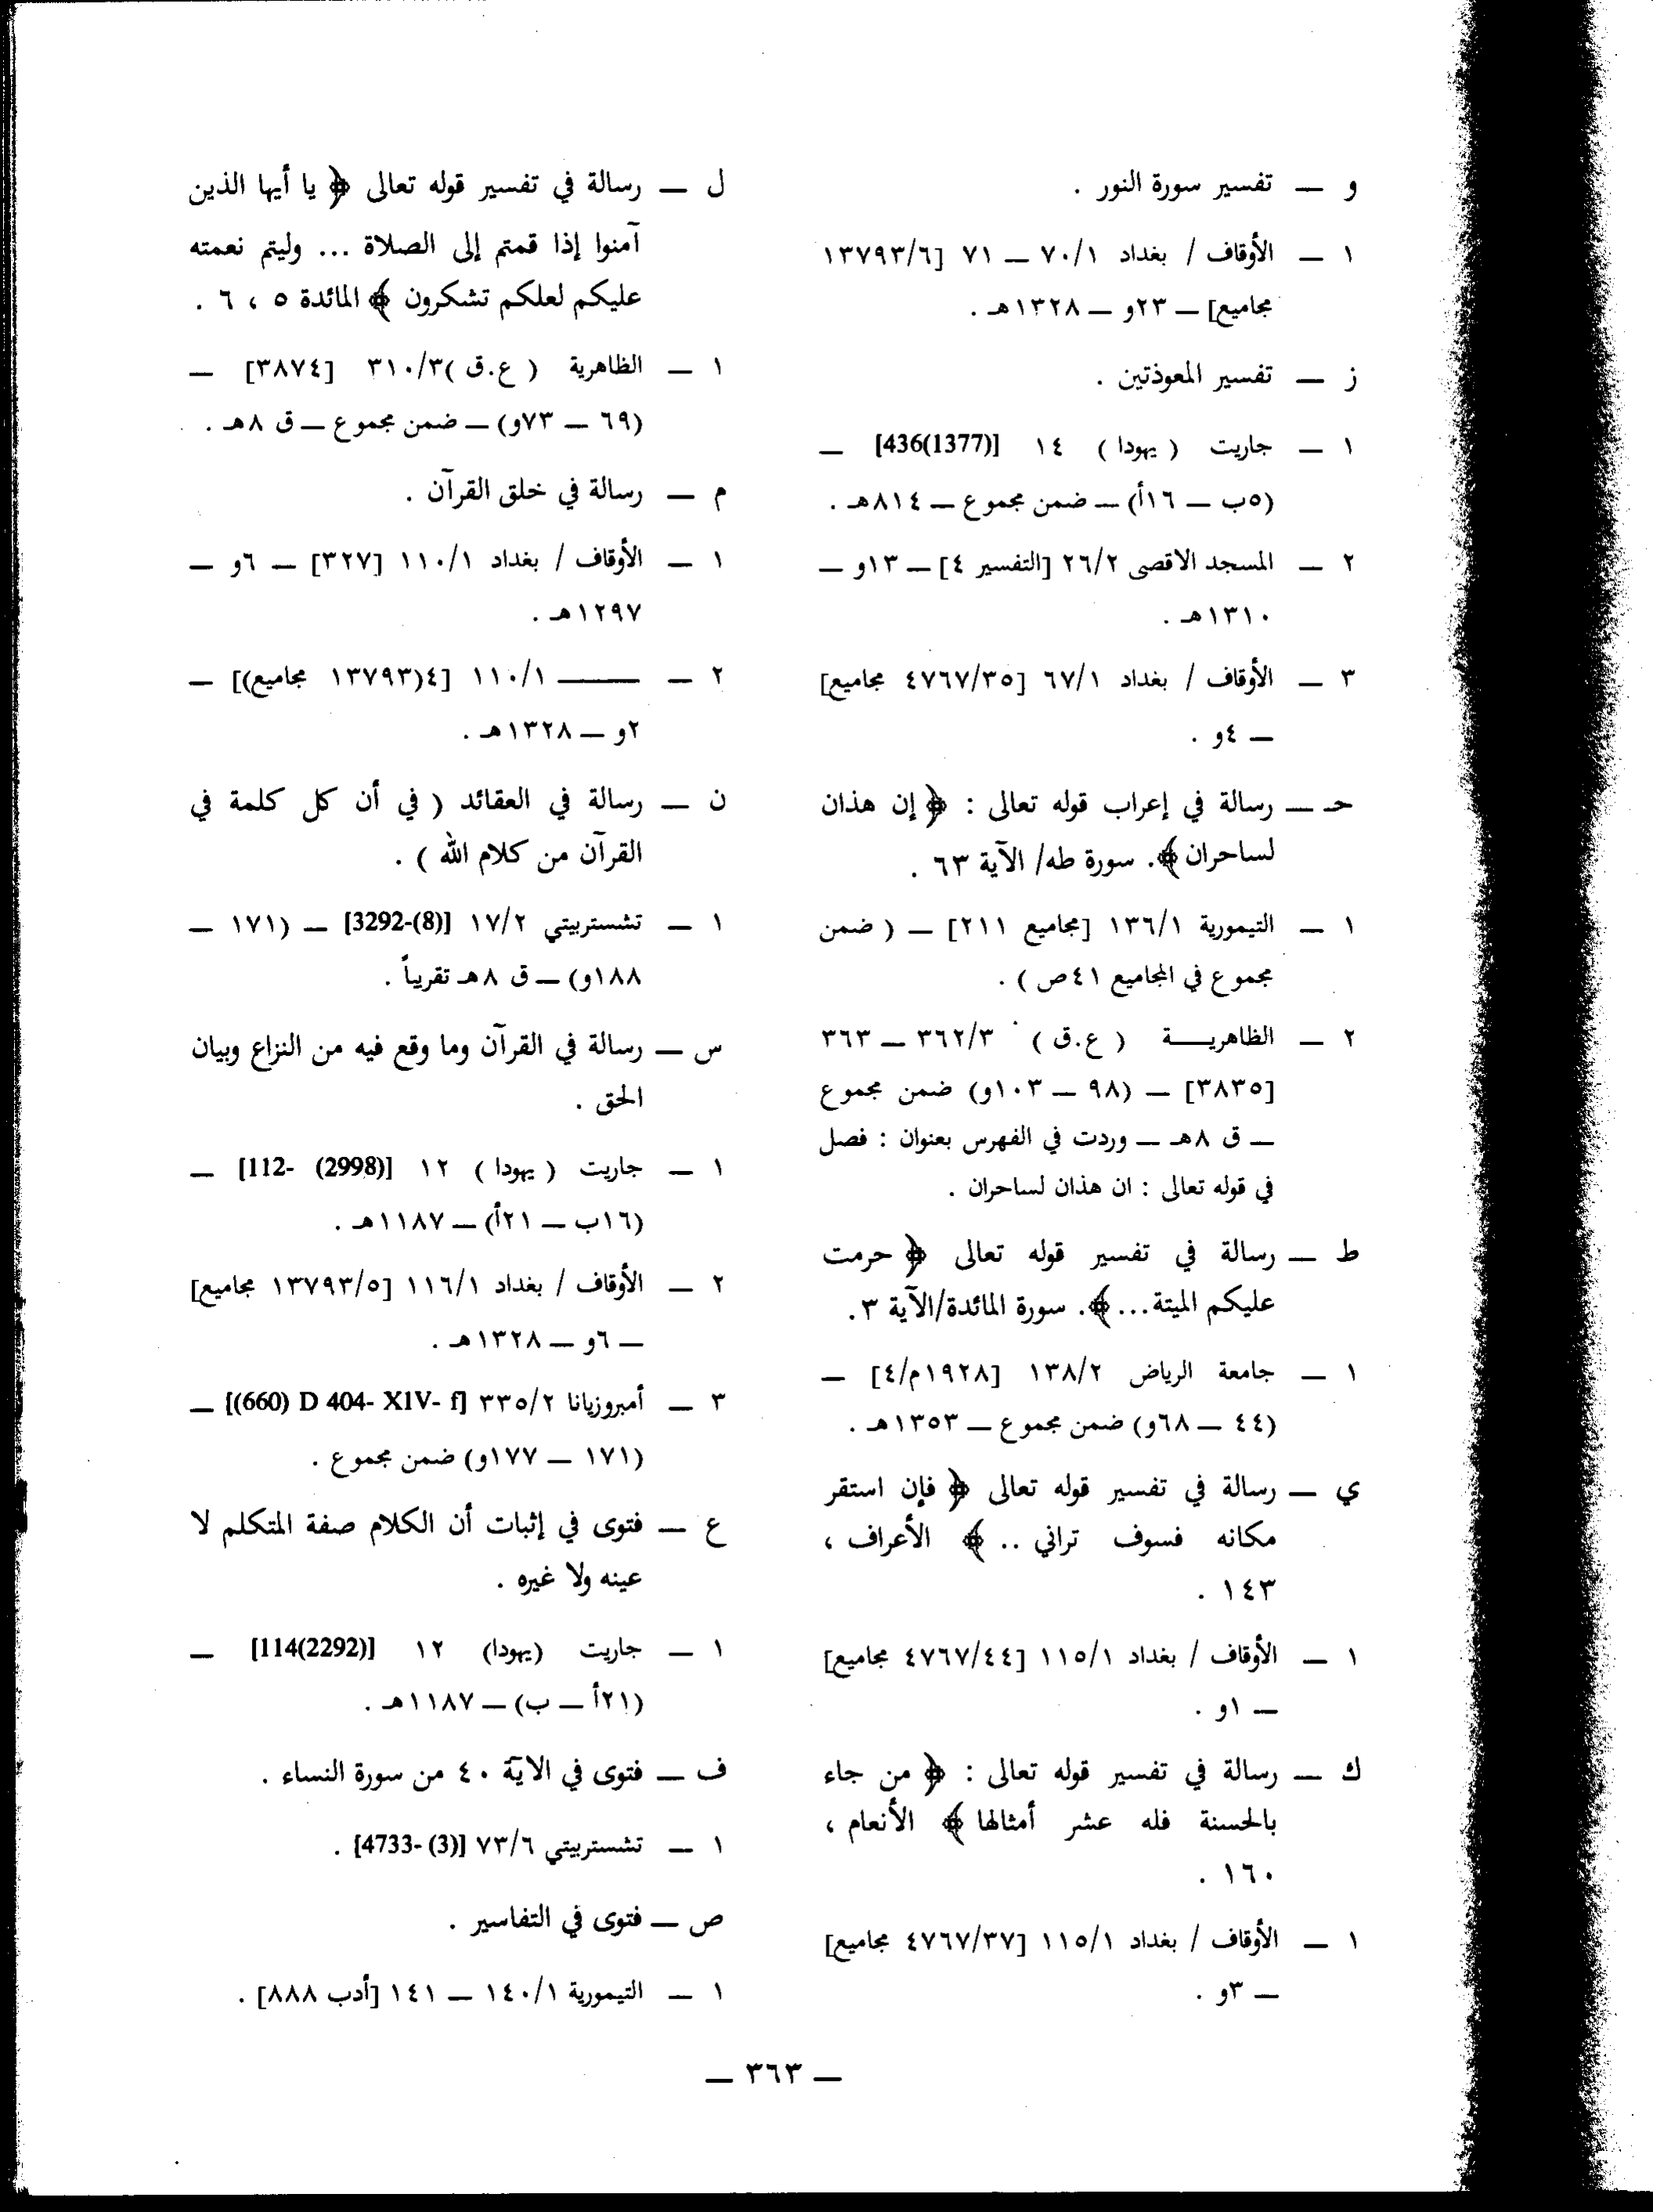 و — تفسير سورة النور .
١ — الأوقاف / بغداد ٧٠/١ — ٧١ [١٣٧٩٣/٦
مجاميع] — ٢٣و — ١٣٢٨هـ .
ز — تفسير المعوذتين .
١ — جاريت ( يهودا ) ١٤ [436(1377)] —
(٥ب — ١٦أ) — ضمن مجموع — ٨١٤هـ .
٢ — المسجد الاقصى ٢٦/٢ [التفسير ٤] — ١٣و —
١٣١٠هـ .
٣ — الأوقاف / بغداد ٦٧/١ [٤٧٦٧/٣٥ مجاميع]
— ٤و .
حـ — رسالة في إعراب قوله تعالى : ﴿ إن هذان
لساحران ﴾. سورة طه/ الآية ٦٣ .
١ — التيمورية ١٣٦/١ [مجاميع ٢١١] — ( ضمن
مجموع في المجاميع ٤١ص ) .
٢ — الظاهريـــة ( ع.ق ) ٣٦٢/٣ — ٣٦٣
[٣٨٣٥] — (٩٨ — ١٠٣و) ضمن مجموع
— ق ٨هـ — وردت في الفهرس بعنوان : فصل
في قوله تعالى : ان هذان لساحران .
ط — رسالة في تفسير قوله تعالى ﴿ حرمت
عليكم الميتة...﴾. سورة المائدة/الآية ٣.
١ — جامعة الرياض ١٣٨/٢ [١٩٢٨م/٤] —
(٤٤ — ٦٨و) ضمن مجموع — ١٣٥٣هـ .
ي — رسالة في تفسير قوله تعالى ﴿ فإن استقر
مكانه فسوف تراني .. ﴾ الأعراف ،
١٤٣ .
١ — الأوقاف / بغداد ١١٥/١ [٤٧٦٧/٤٤ مجاميع]
— ١و .
ك — رسالة في تفسير قوله تعالى : ﴿ من جاء
بالحسنة فله عشر أمثالها ﴾ الأنعام ،
١٦٠ .
١ — الأوقاف / بغداد ١١٥/١ [٤٧٦٧/٣٧ مجاميع]
— ٣و .
ل — رسالة في تفسير قوله تعالى ﴿ يا أيها الذين
آمنوا إذا قمتم إلى الصلاة ... وليتم نعمته
عليكم لعلكم تشكرون ﴾ المائدة ٥ ، ٦ .
١ — الظاهرية ( ع.ق )٣١٠/٣ [٣٨٧٤] —
(٦٩ — ٧٣و) — ضمن مجموع — ق ٨هـ .
م — رسالة في خلق القرآن .
١ — الأوقاف / بغداد ١١٠/١ [٣٢٧] — ٦و —
١٢٩٧هـ .
٢ — —— ١١٠/١ [٤(١٣٧٩٣ مجاميع)] —
٢و — ١٣٢٨هـ .
ن — رسالة في العقائد ( في أن كل كلمة في
القرآن من كلام الله ) .
١ — تشستربيتي ١٧/٢ [3292-(8)] — (١٧١ —
١٨٨و) — ق ٨هـ تقريباً .
س — رسالة في القرآن وما وقع فيه من النزاع وبيان
الحق .
١ — جاريت ( يهودا ) ١٢ [112- (2998)] —
(١٦ب — ٢١أ) — ١١٨٧هـ .
٢ — الأوقاف / بغداد ١١٦/١ [١٣٧٩٣/٥ مجاميع]
— ٦و — ١٣٢٨هـ .
٣ — أمبروزيانا ٣٣٥/٢ [(660) D 404- X1V- f)] —
(١٧١ — ١٧٧و) ضمن مجموع .
ع — فتوى في إثبات أن الكلام صفة المتكلم لا
عينه ولا غيره .
١ — جاريت (يهودا) ١٢ [114(2292)] —
(٢١أ — ب) — ١١٨٧هـ .
ف — فتوى في الآية ٤٠ من سورة النساء .
١ — تشستربيتي ٧٣/٦ [4733- (3)] .
ص — فتوى في التفاسير .
١ — التيمورية ١٤٠/١ — ١٤١ [أدب ٨٨٨] .
— ٣٦٣ —